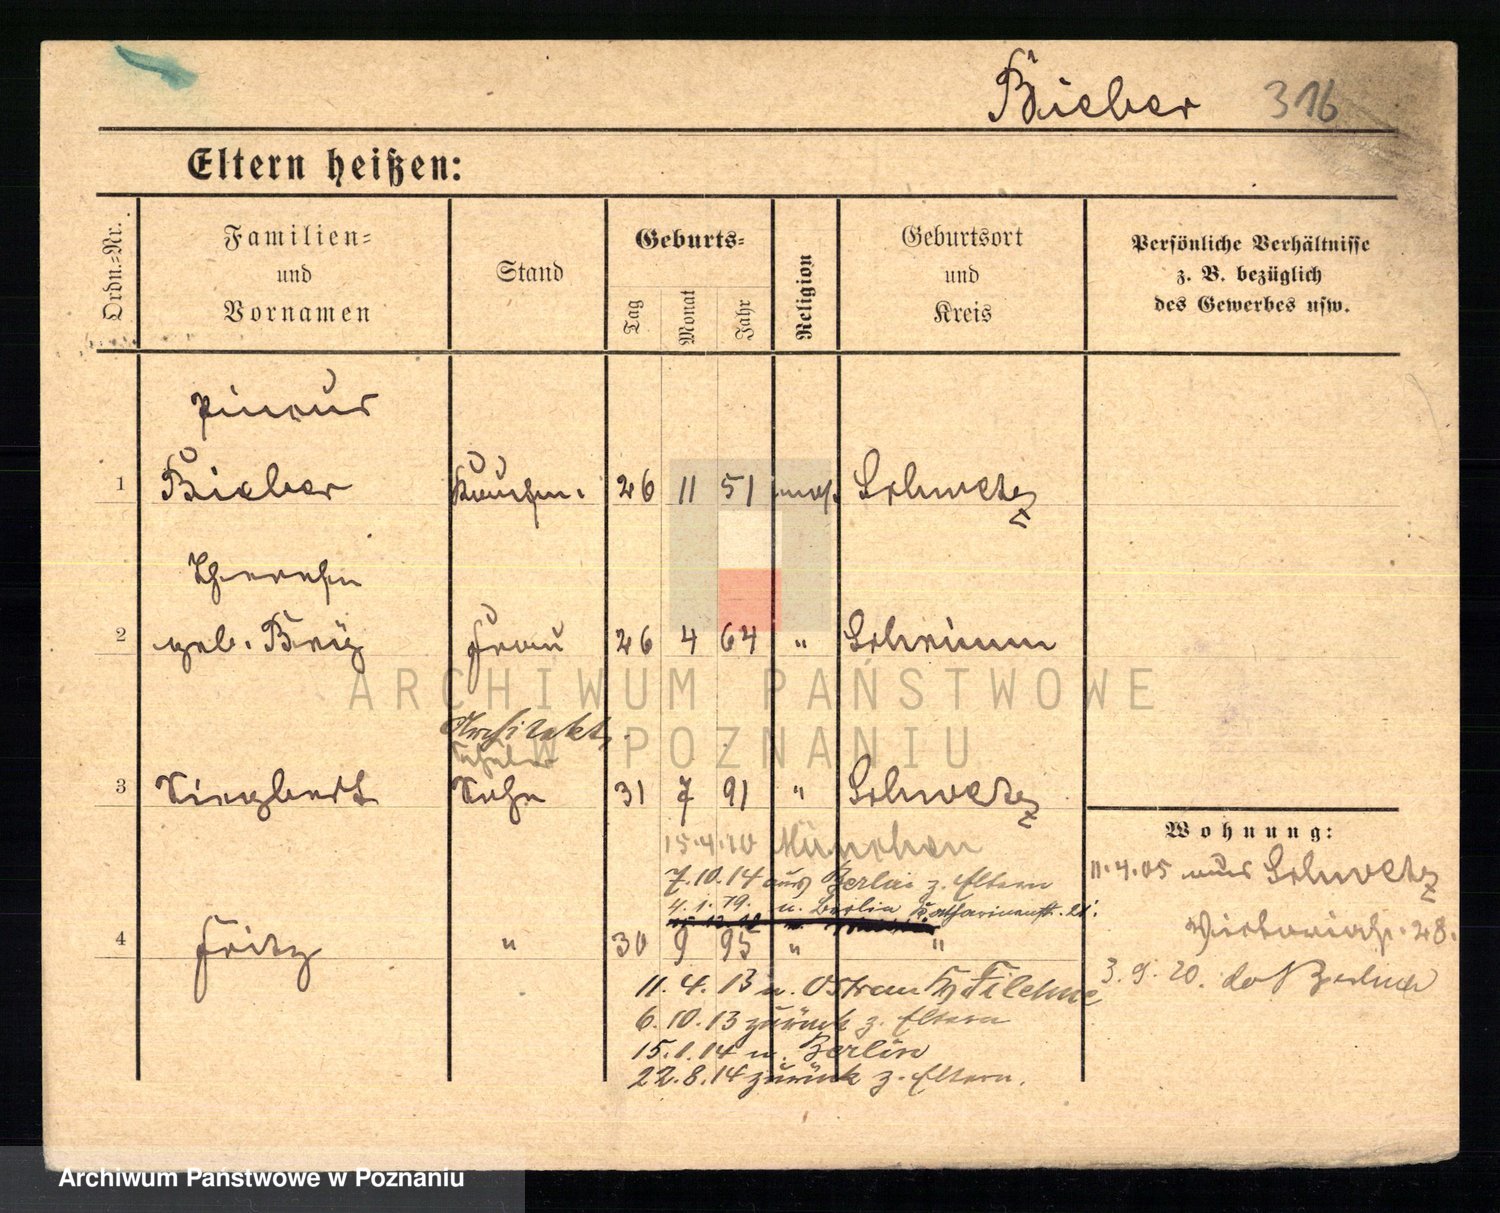 Bieber 316
Eltern heißen:
Ordn.=Nr.
Familien=
und
Vornamen
Stand
Geburts=
Tag
Monat
Jahr
Religion
Geburtsort
und
Kreis
Persönliche Verhältnisse
z. B. bezüglich
des Gewerbes usw.
Pincus
1 Bieber Kaufm. 26 11 51 mos. Schwetz
2 geb. Frau 26 4 64 " Schrimm
Architekt,
3 Siegbert Sohn 31 7 91 " Schwetz
15.4.10 München
7.10.14 aus Berlin z. Eltern
4.1.19. n. Berlin Katharinenstr. 21.
4 Fritz " 30 9 95 " "
11.4.13 n. Ostrau by Filehne
6.10.13 zurück z. Eltern
15.1.14 n. Berlin
22.8.14 zurück z. Eltern.
Wohnung:
11.4.05 aus Schwetz
Victoriastr. 28.
3.9.20. Berlin
ARCHIWUM PAŃSTWOWE
W POZNANIU
Archiwum Państwowe w Poznaniu